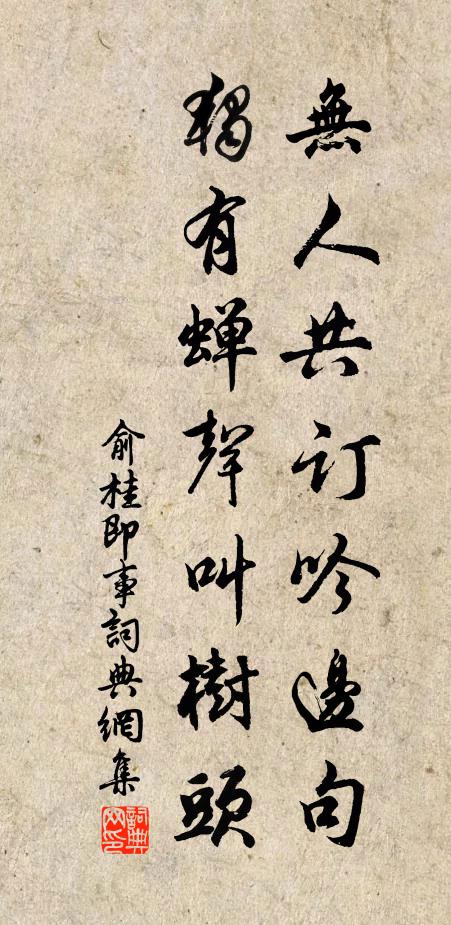 無人共订吟邊句
獨有蝉聲叫樹頭
俞桂即事詞典網集
詞典
网印